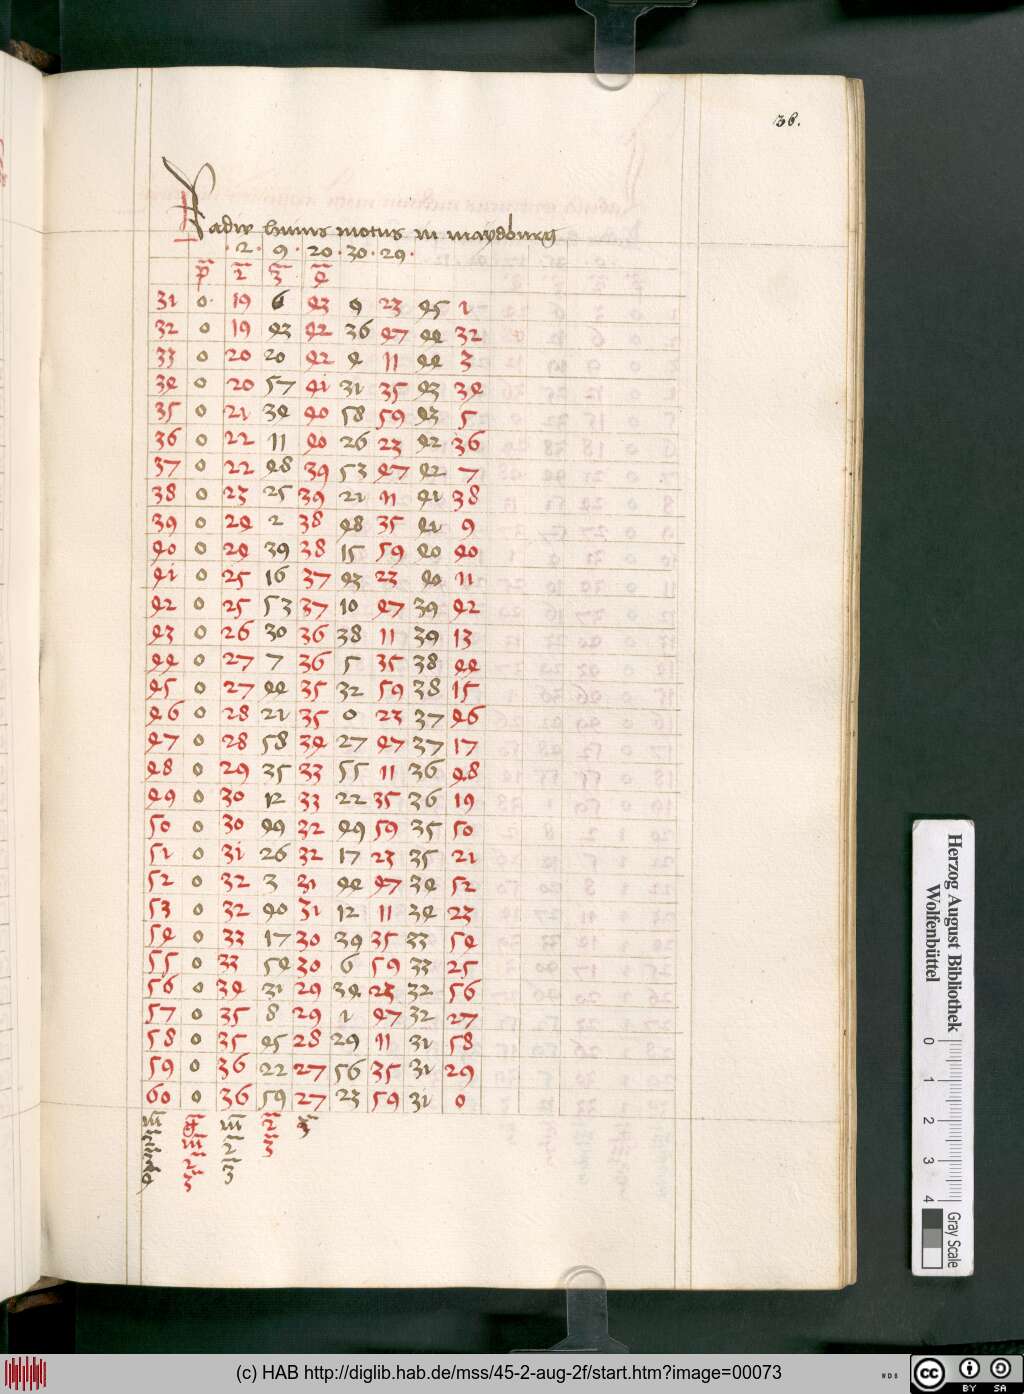 38.
Radix huius motus in maydburg
· 2 · 9 · 20 · 30 · 29 ·
p̄ 2̄ 3̄ 4̄
31 0 19 6 43 9 23 45 1
32 0 19 43 42 36 47 44 32
33 0 20 20 42 4 11 44 3
34 0 20 57 41 31 35 43 34
35 0 21 34 40 58 59 43 5
36 0 22 11 40 26 23 42 36
37 0 22 48 39 53 47 42 7
38 0 23 25 39 21 11 41 38
39 0 24 2 38 48 35 41 9
40 0 24 39 38 15 59 40 40
41 0 25 16 37 43 23 40 11
42 0 25 53 37 10 47 39 42
43 0 26 30 36 38 11 39 13
44 0 27 7 36 5 35 38 44
45 0 27 44 35 32 59 38 15
46 0 28 21 35 0 23 37 46
47 0 28 58 34 27 47 37 17
48 0 29 35 33 55 11 36 48
49 0 30 12 33 22 35 36 19
50 0 30 49 32 49 59 35 50
51 0 31 26 32 17 23 35 21
52 0 32 3 31 44 47 34 52
53 0 32 40 31 12 11 34 23
54 0 33 17 30 39 35 33 54
55 0 33 54 30 6 59 33 25
56 0 34 31 29 34 23 32 56
57 0 35 8 29 1 47 32 27
58 0 35 45 28 29 11 31 58
59 0 36 22 27 56 35 31 29
60 0 36 59 27 23 59 31 0
m̄ m̄ 2̄ 3̄
m̄ 2̄ 3̄
2̄ 3̄
3̄
Herzog August Bibliothek
Wolfenbüttel
0 1 2 3 4
Gray Scale
(c) HAB http://diglib.hab.de/mss/45-2-aug-2f/start.htm?image=00073
WDB
cc BY SA